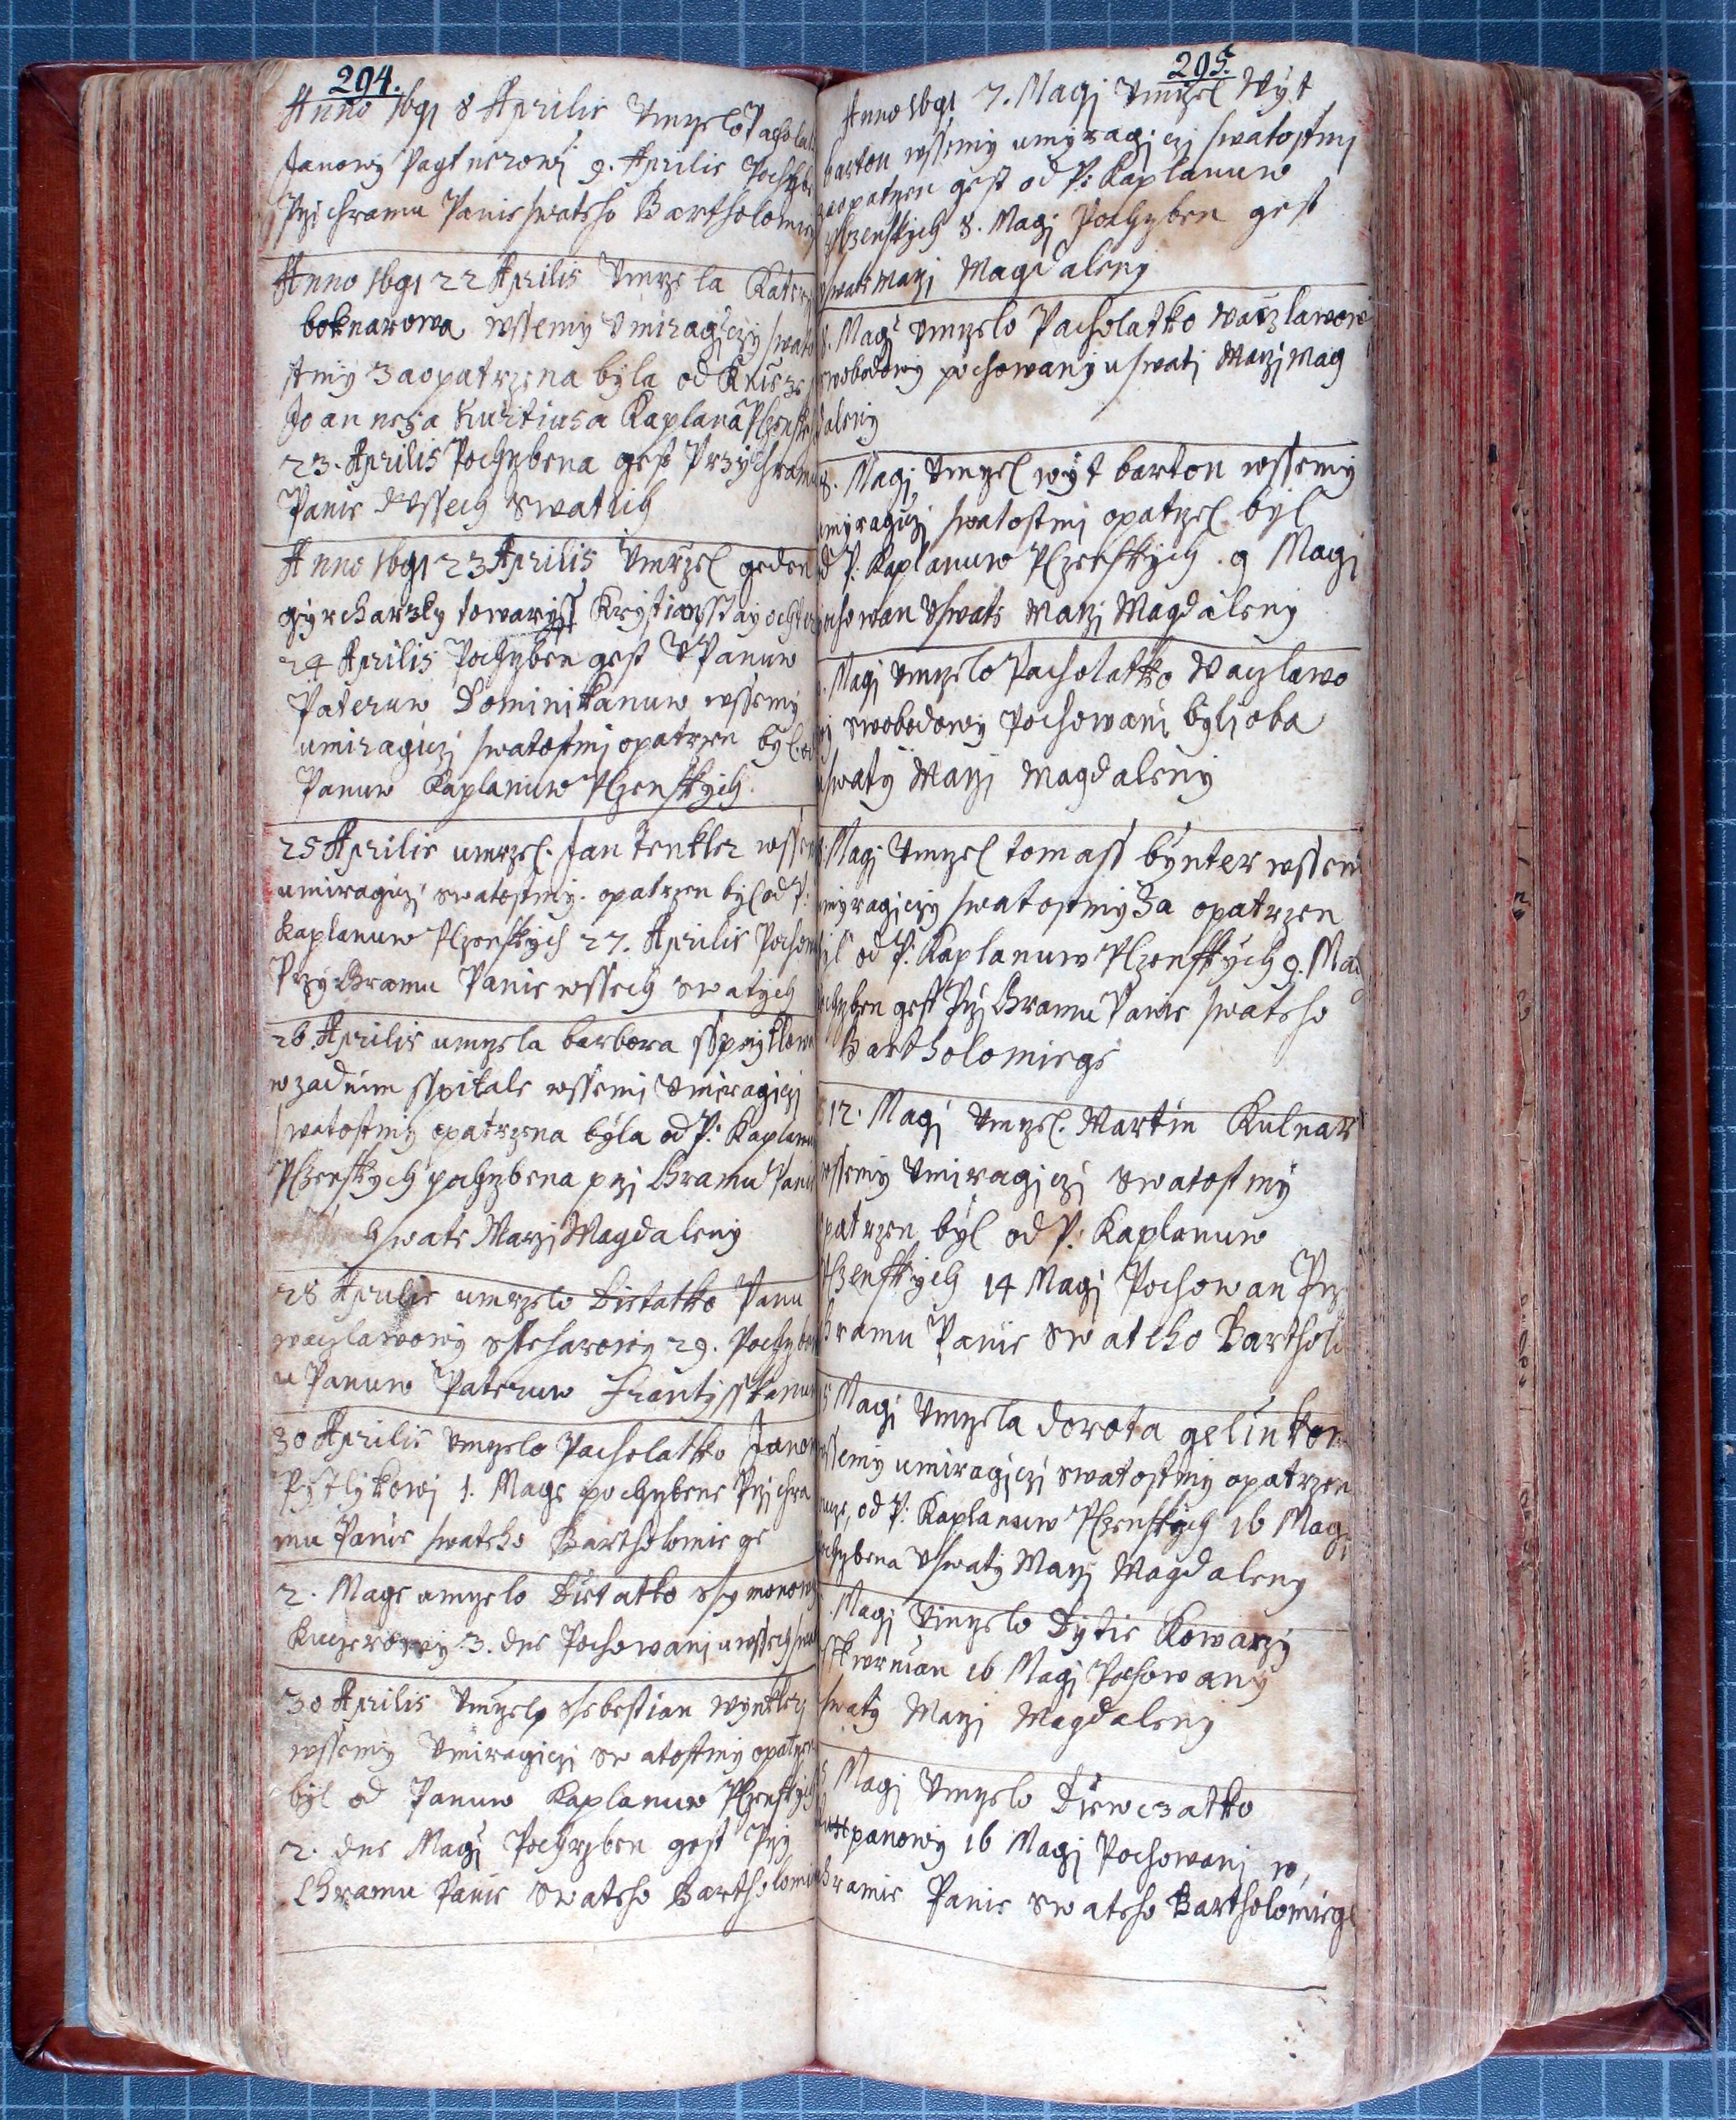 294.
Anno 1691 8 Aprilis Vmrzelo Pacholat
Janowj Pagtnerowj 9. Aprilis Pochrzbe
Przi chramu Panie swateho Bartholomieg
Anno 1691 22 Aprilis Vmrzela Katerz
boknarowa wssemy Vmiragiczy swato
stmy Zaopatrzena byla od Knieze
Joannesa Kurtiusa Kaplana Plzenske
23. Aprilis Pochrzbena gest Przy Chramu
Panie Wssech Swatich
Anno 1691 23 Aprilis Vmrzel geden
gircharzky towaryss Krystian
24 Aprilis Pochrzben gest V Panuw
Pateruw Dominikanuw wssemy
umiragiczj swatostmj opatrzen byl od
Panuw Kaplanuw Plzenskych.
25 Aprilis umrzel. Jan Tenkler wssem
umiragiczj swatostmy. opatrzen byl od P:
Kaplanuw Plzenskych 27. Aprilis Pochow
Przy Chramu Panie wssech Swatych
26 Aprilis umrzela barbora sspryklow
w zadnim sspitale wssemi Vmiragiczj
swatostmy opatrzena byla od P: Kaplanu
Plzenskych pochrzbena przj Chramu Panie
Swate Marzi Magdaleny
28 Aprilis umrzelo Dietatko Panu
waczlawowy Steharowy 29. Pochrzben
u Panuw Pateruw Frantisskanuw
30 Aprilis Vmrzelo Pacholatko Janow
Pytlykowj 1. Mage pochrzbene Przi chra
mu Panie swateho Bartholomiege
2. Mage umrzelo Dietatko Ssymonowy
Kuczerowy 3. dne Pochowanj u wssech swat
30 Aprilis Vmrzelo Ssebestian Wynkler
wssemy Vmiragiczj Swatostmy opatrzen
byl od Panuw Kaplanuw Plzenskych
2. dne Magi Pochrzben gest Przy
Chramu Panie Swateho Bartholomie
295.
Anno 1691 7. Magj Vmrzel Wyt
barton wssemy umyragiczj swatostmj
zaopatrzen gest od P: Kaplanuw
Plzenskych 8. Magj Pochrzben gest
swate Marzj Magdaleny
8. Magj Vmrzelo Pacholatko Waczlawow
swobodowy pochowany u swati Marzj Mag
daleny
8. Magj Vmrzel wyt barton wssemy
umyragiczj swatostmj opatrzel byl
od P: Kaplanuw Plzenskych. 9 Magj
pochowan V swate Marzj Magdaleny
Magj Vmrzelo Pacholatko Waczlawo
wj swobodowy Pochowani byli oba
u swaty Marzj Magdaleny
Magj Vmrzel tomass bynter wssem
umyragiczy swatostmy Za opatrzen
byl od P: Kaplanuw Plzenskych 9. Mag
Pochrzben gest Przi Chramu Panie swateho
Bartholomiege
12. Magj Vmrzel. Martin Kulnar
wssemy Vmiragiczj Swatostmy
opatrzen byl od P: Kaplanuw
Plzenskych 14 Magj Pochowan Prz
Chramu Panie Swateho Barthol
Magj Vmrzela dorota gelinkow
wssemy umiragiczi swatostmy opatrzen
od P: Kaplanuw Plzenskych 16 Magj
Pochrzbena V swaty Marzj Magdaleny
Magj Vmrzelo Dytie Kowarzy
sskwrnian 16 Magj Pochowany
swaty Marzj Magdaleny
Magj Vmrzelo Diewczatko
panowy 16 Magj Pochowanj w,
Chramie Panie Swateho Bartholomiege